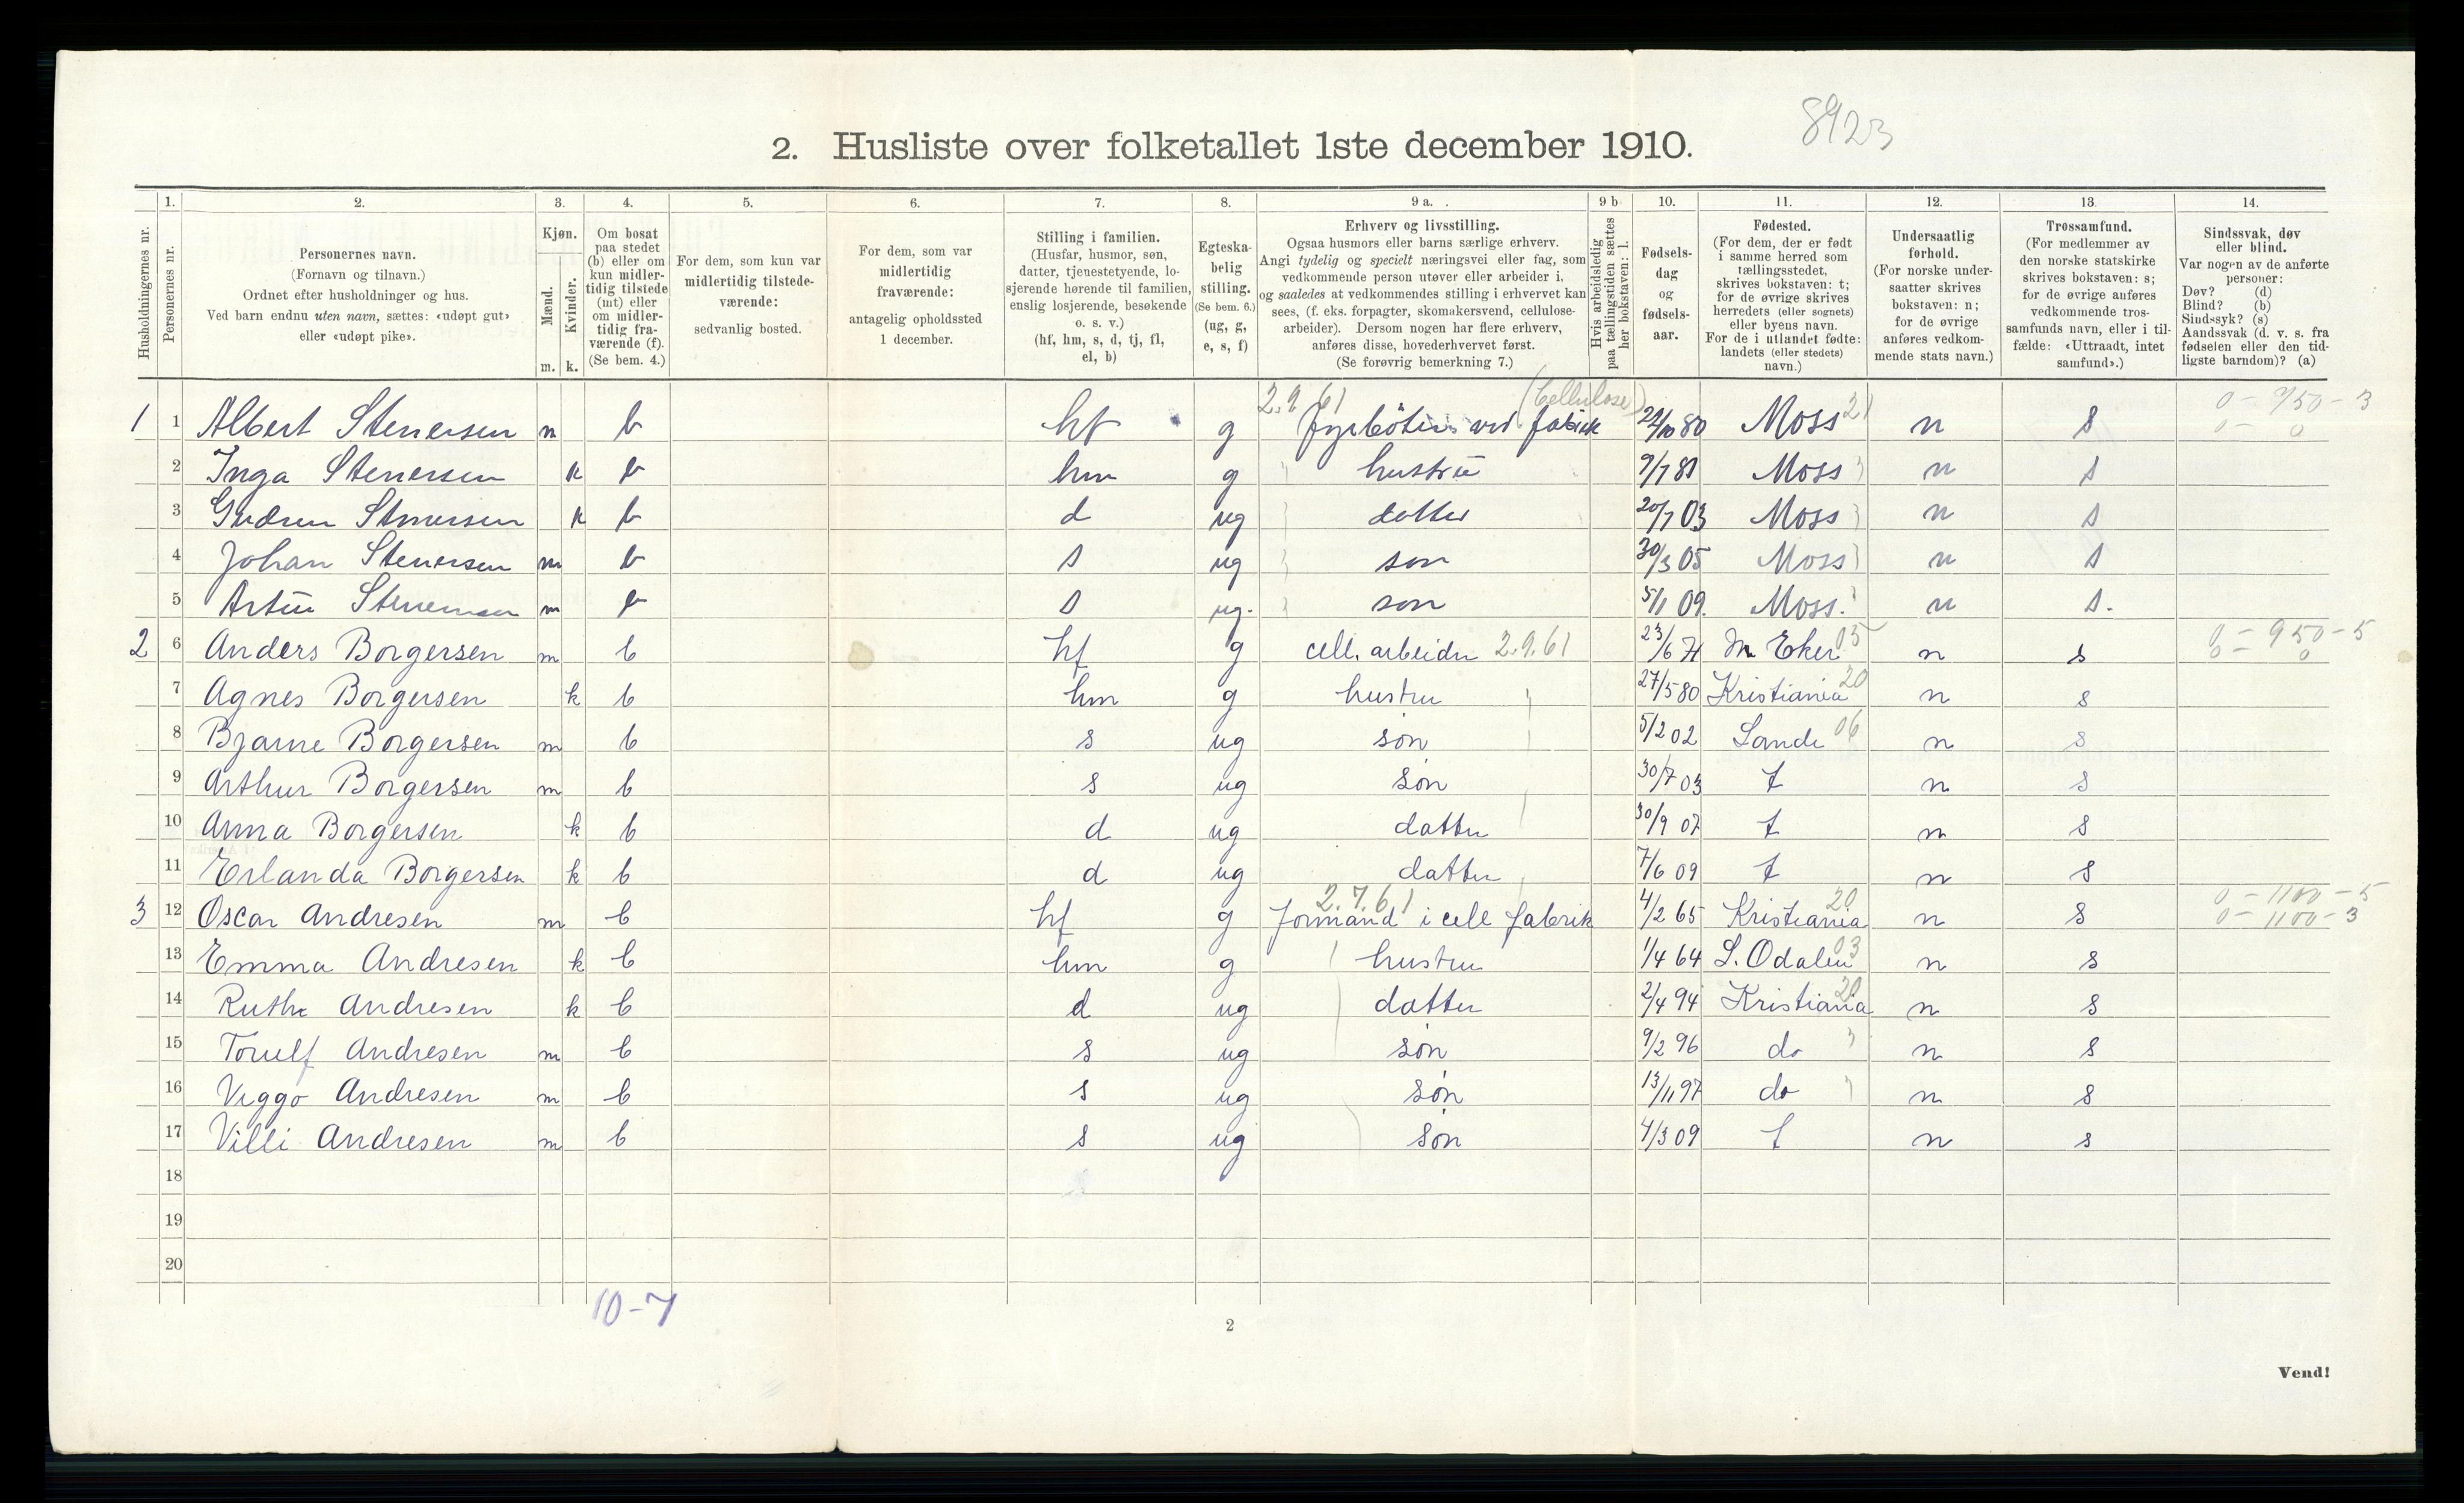 8923
2. Husliste over folketallet 1ste december 1910.
Husholdningernes nr.
1. Personernes nr.
2. Personernes navn.
(Fornavn og tilnavn.)
Ordnet efter husholdninger og hus.
Ved barn endnu uten navn, sættes: «udøpt gut»
eller «udøpt pike».
3. Kjøn.
Mænd. m.
Kvinder. k.
4. Om bosat
paa stedet
(b) eller om
kun midler-
tidig tilstede
(mt) eller
om midler-
tidig fra-
værende (f).
(Se bem. 4.)
5. For dem, som kun var
midlertidig tilstede-
værende:
sedvanlig bosted.
6. For dem, som var
midlertidig
fraværende:
antagelig opholdssted
1 december.
7. Stilling i familien.
(Husfar, husmor, søn,
datter, tjenestetyende, lo-
sjerende hørende til familien,
enslig losjerende, besøkende
o. s. v.)
(hf, hm, s, d, tj, fl,
el, b)
8. Egteska-
belig
stilling.
(Se bem. 6.)
(ug, g,
e, s, f)
9 a. Erhverv og livsstilling.
Ogsaa husmors eller barns særlige erhverv.
Angi tydelig og specielt næringsvei eller fag, som
vedkommende person utøver eller arbeider i,
og saaledes at vedkommendes stilling i erhvervet kan
sees, (f. eks. forpagter, skomakersvend, cellulose-
arbeider). Dersom nogen har flere erhverv,
anføres disse, hovederhvervet først.
(Se forøvrig bemerkning 7.)
9 b Hvis arbeidsledig
paa tællingstiden sættes
her bokstaven: l.
10. Fødsels-
dag
og
fødsels-
aar.
11. Fødested.
(For dem, der er født
i samme herred som
tællingsstedet,
skrives bokstaven: t;
for de øvrige skrives
herredets (eller sognets)
eller byens navn.
For de i utlandet fødte:
landets (eller stedets)
navn.)
12. Undersaatlig
forhold.
(For norske under-
saatter skrives
bokstaven: n;
for de øvrige
anføres vedkom-
mende stats navn.)
13. Trossamfund.
(For medlemmer av
den norske statskirke
skrives bokstaven: s;
for de øvrige anføres
vedkommende tros-
samfunds navn, eller i til-
fælde: «Uttraadt, intet
samfund».)
14. Sindssvak, døv
eller blind.
Var nogen av de anførte
personer:
Døv? (d)
Blind? (b)
Sindssyk? (s)
Aandssvak (d. v. s. fra
fødselen eller den tid-
ligste barndom)? (a)
2.9 61 (Cellulose) 0 - 950 - 3
1 1 Albert Stenersen m b hf g fyrböter ved fabrik 80 Moss 21 n s 0 - 0
2 Inga Stenersen k b hm g hustru Moss n s
3 Gudrun Stenersen k b d ug datter 20/7 03 Moss n s
4 Johan Stenersen m b s ug son 30/3 05 Moss n s
5 Artur Stenersen m b s ug. son 5/1 09. Moss. n s.
0 - 950 - 5
2 6 Anders Borgersen m b hf g cell. arbeider 2.9.61 23/6 71 Eker 05 n s 0 - 0
7 Agnes Borgersen k b hm g hustru 27/5 80 Kristiania 20 n s
8 Bjarne Borgersen m b s ug søn 5/2 02 Sande 06 n s
9 Arthur Borgersen m b s ug søn 30/7 03 t n s
10 Anna Borgersen k b d ug datter 30/9 07 t n s
11 Erlanda Borgersen k b d ug datter 7/6 09 t n s
2.7.61 20 0 - 1100 - 5
3 12 Oscar Andresen m b hf g formand i cell fabrik 4/2 65 Kristiania n s 0 - 1100 - 3
13 Emma Andresen k b hm g hustru 1/4 64 S. Odalen 03 n s
14 Ruth Andresen k b d ug datter 2/4 94 Kristiania 20 n s
15 Torulf Andresen m b s ug søn 9/2 96 do n s
16 Viggo Andresen m b s ug søn 13/11 97 do n s
17 Villi Andresen m b s ug søn 4/3 09 t n s
18
19
20
10-7
2
Vend!